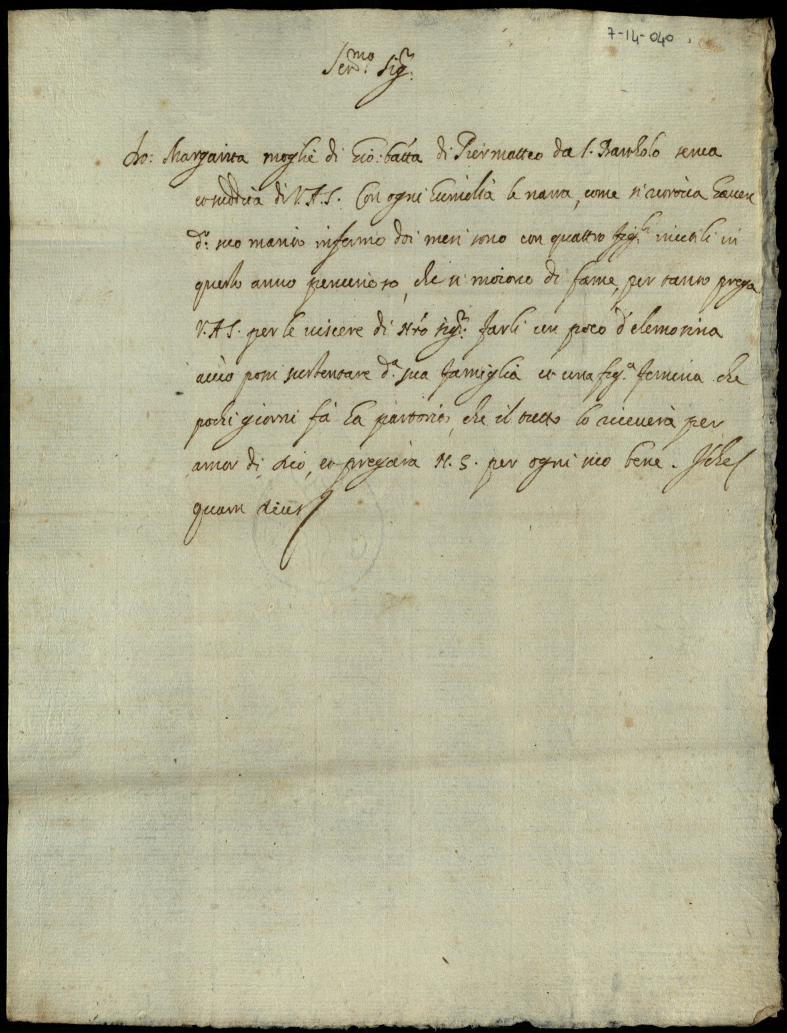 7-14-040
Ser.mo Sig.r
Margarita moglie di Gio: batta di Piermatteo da S. Bartholo serva
et suddita di V.A.S. Con ogni humiltà le narra, come si ritrova haver
d.o suo marito infermo doi mesi sono con quattro fig.li inutili in
questo anno penurioso, che si moiono di fame, per tanto prega
V.A.S. per le viscere di Nro Sig.r farli un poco d'elemosina
acciò possi sustentare d.a sua famiglia et una fig.a femina che
pochi giorni fà ha partorito, che il tutto lo riceverà per
amor di Dio, et pregarà N.S. per ogni suo bene.
quam Deus